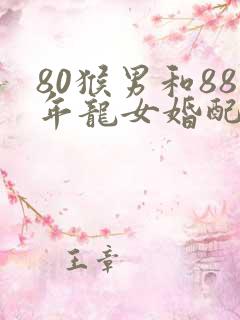 80猴男和88
年龍女婚配
王章